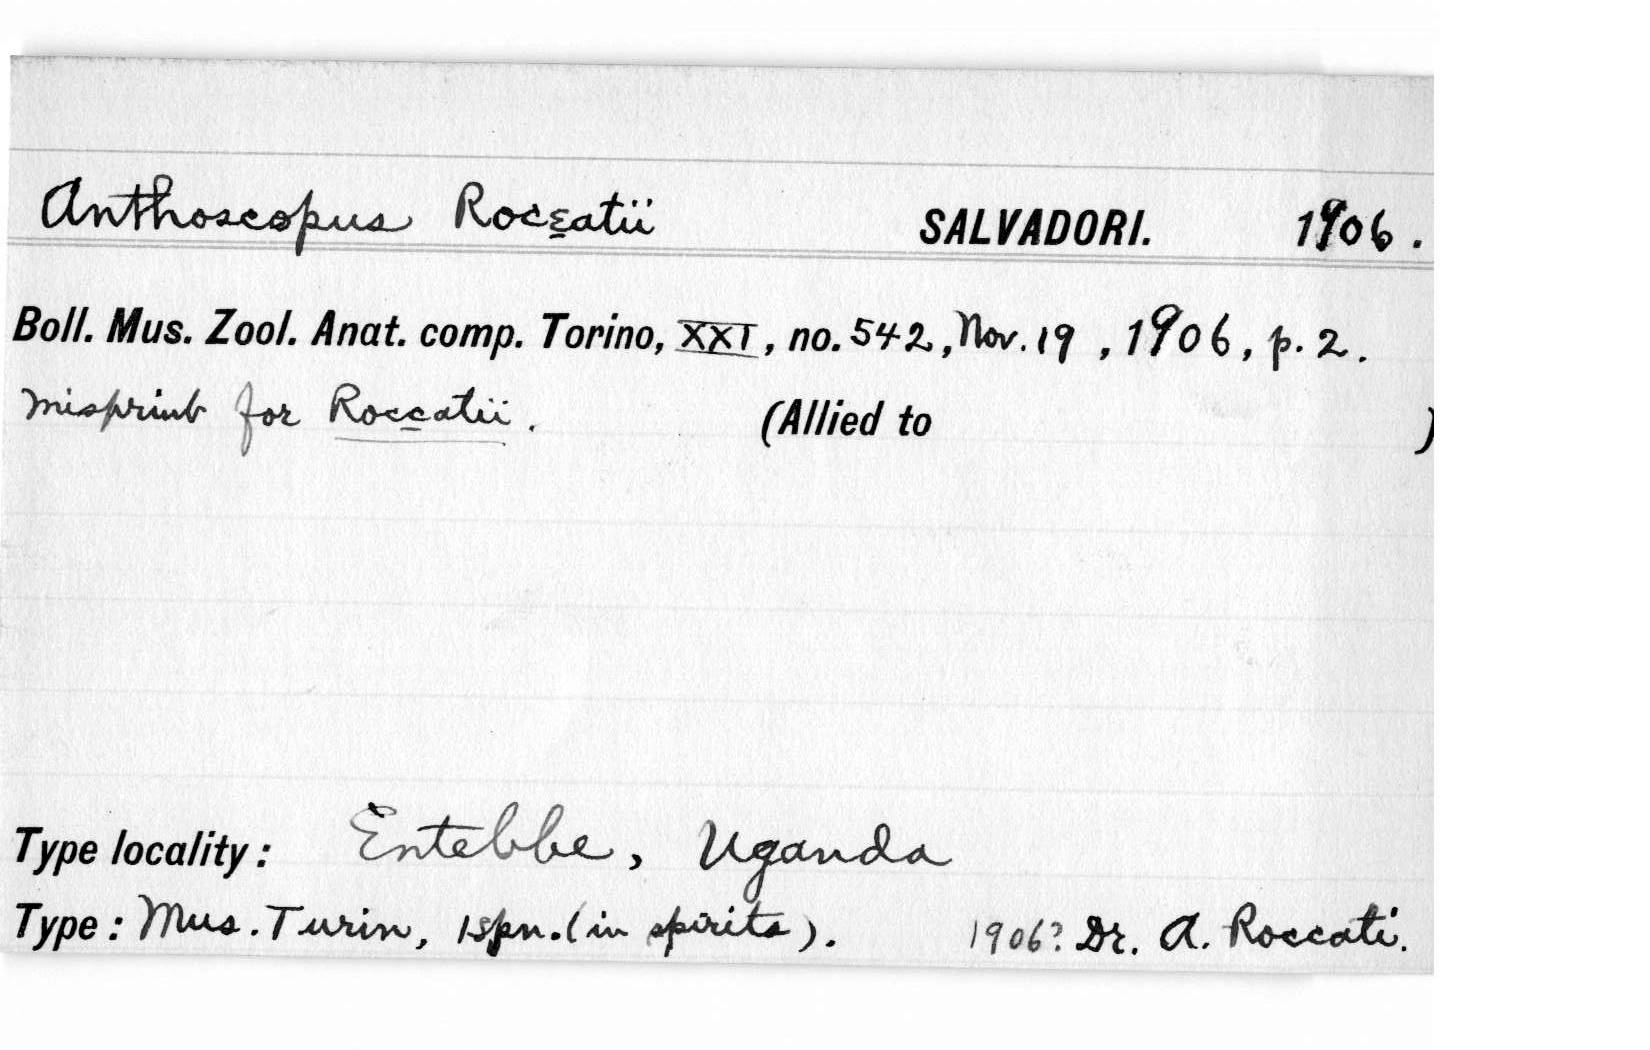 Anthoscopus Roceatii SALVADORI. 1906.
Boll. Mus. Zool. Anat. comp. Torino, XXI, no. 542, Nov. 19, 1906, p. 2.
Misprint for Roccatii. (Allied to )
Type locality: Entebbe, Uganda
Type: Mus. Turin, 1 spn. (in spirits). 1906? Dr. A. Roccati.